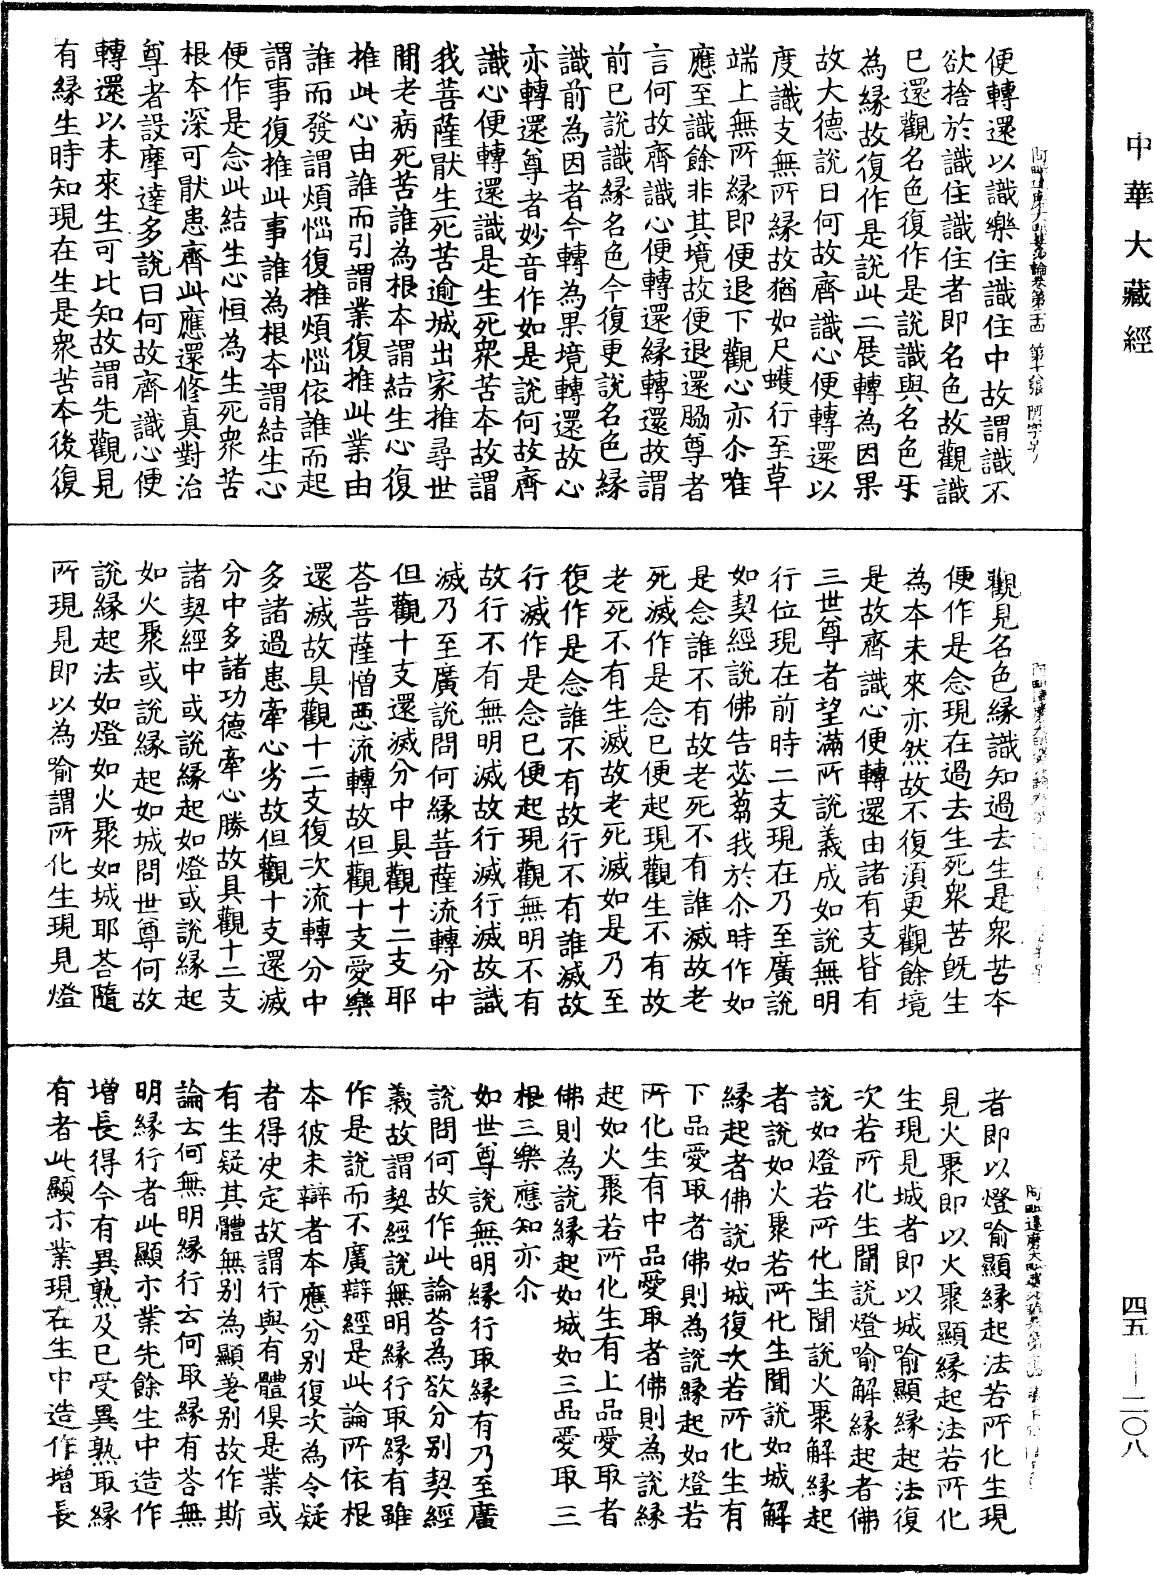 中華大藏經
便轉還以識樂住識住中故謂識不
欲捨於識住識住者即名色故觀識
已還觀名色復作是說識與名色牙
為緣故復作是說此二展轉為因果
故大德說曰何故齊識心便轉還以
度識支無所緣故猶如尺蠖行至草
端上無所緣即便退下觀心亦尒唯
應至識餘非其境故便退還脇尊者
言何故齊識心便轉還緣轉還故謂
前已說識緣名色今復更說名色緣
識前為因者今轉為果境轉還故心
亦轉還尊者妙音作如是說何故齊
識心便轉還識是生死衆苦本故謂
我菩薩猒生死苦逾城出家推尋世
間老病死苦誰為根本謂結生心復
推此心由誰而引謂業復推此業由
誰而發謂煩惱復推煩惱依誰而起
謂事復推此事誰為根本謂結生心
便作是念此結生心恒為生死衆苦
根本深可猒患齊此應還修真對治
尊者設摩達多說曰何故齊識心便
轉還以未來生可比知故謂先觀見
有緣生時知現在生是衆苦本後復
觀見名色緣識知過去生是衆苦本
便作是念現在過去生死衆苦旣生
為本未來亦然故不復須更觀餘境
是故齊識心便轉還由諸有支皆有
三世尊者望滿所說義成如說無明
行位現在前時二支現在乃至廣說
如契經說佛告苾蒭我於尒時作如
是念誰不有故老死不有誰滅故老
死滅作是念已便起現觀生不有故
老死不有生滅故老死滅如是乃至
復作是念誰不有故行不有誰滅故
行滅作是念已便起現觀無明不有
故行不有無明滅故行滅行滅故識
滅乃至廣說問何緣菩薩流轉分中
但觀十支還滅分中具觀十二支耶
荅菩薩憎惡流轉故但觀十支愛樂
還滅故具觀十二支復次流轉分中
多諸過患牽心劣故但觀十支還滅
分中多諸功德牽心勝故具觀十二支
諸契經中或說緣起如燈或說緣起
如火聚或說緣起如城問世尊何故
說緣起法如燈如火聚如城耶荅隨
所現見即以為喻謂所化生現見燈
者即以燈喻顯緣起法若所化生現
見火聚即以火聚顯緣起法若所化
生現見城者即以城喻顯緣起法復
次若所化生聞說燈喻解緣起者佛
說如燈若所化生聞說火聚解緣起
者說如火聚若所化生聞說如城解
緣起者佛說如城復次若所化生有
下品愛取者佛則為說緣起如燈若
所化生有中品愛取者佛則為說緣
起如火聚若所化生有上品愛取者
佛則為說緣起如城如三品愛取三
根三樂應知亦尒
如世尊說無明緣行取緣有乃至廣
說問何故作此論荅為欲分別契經
義故謂契經說無明緣行取緣有雖
作是說而不廣辯經是此論所依根
本彼未辯者本應分別復次為令疑
者得決定故謂行與有體俱是業或
有生疑其體無別為顯差別故作斯
論云何無明緣行云何取緣有荅無
明緣行者此顯示業先餘生中造作
增長得今有異熟及已受異熟取緣
有者此顯示業現在生中造作增長
四五—二〇八